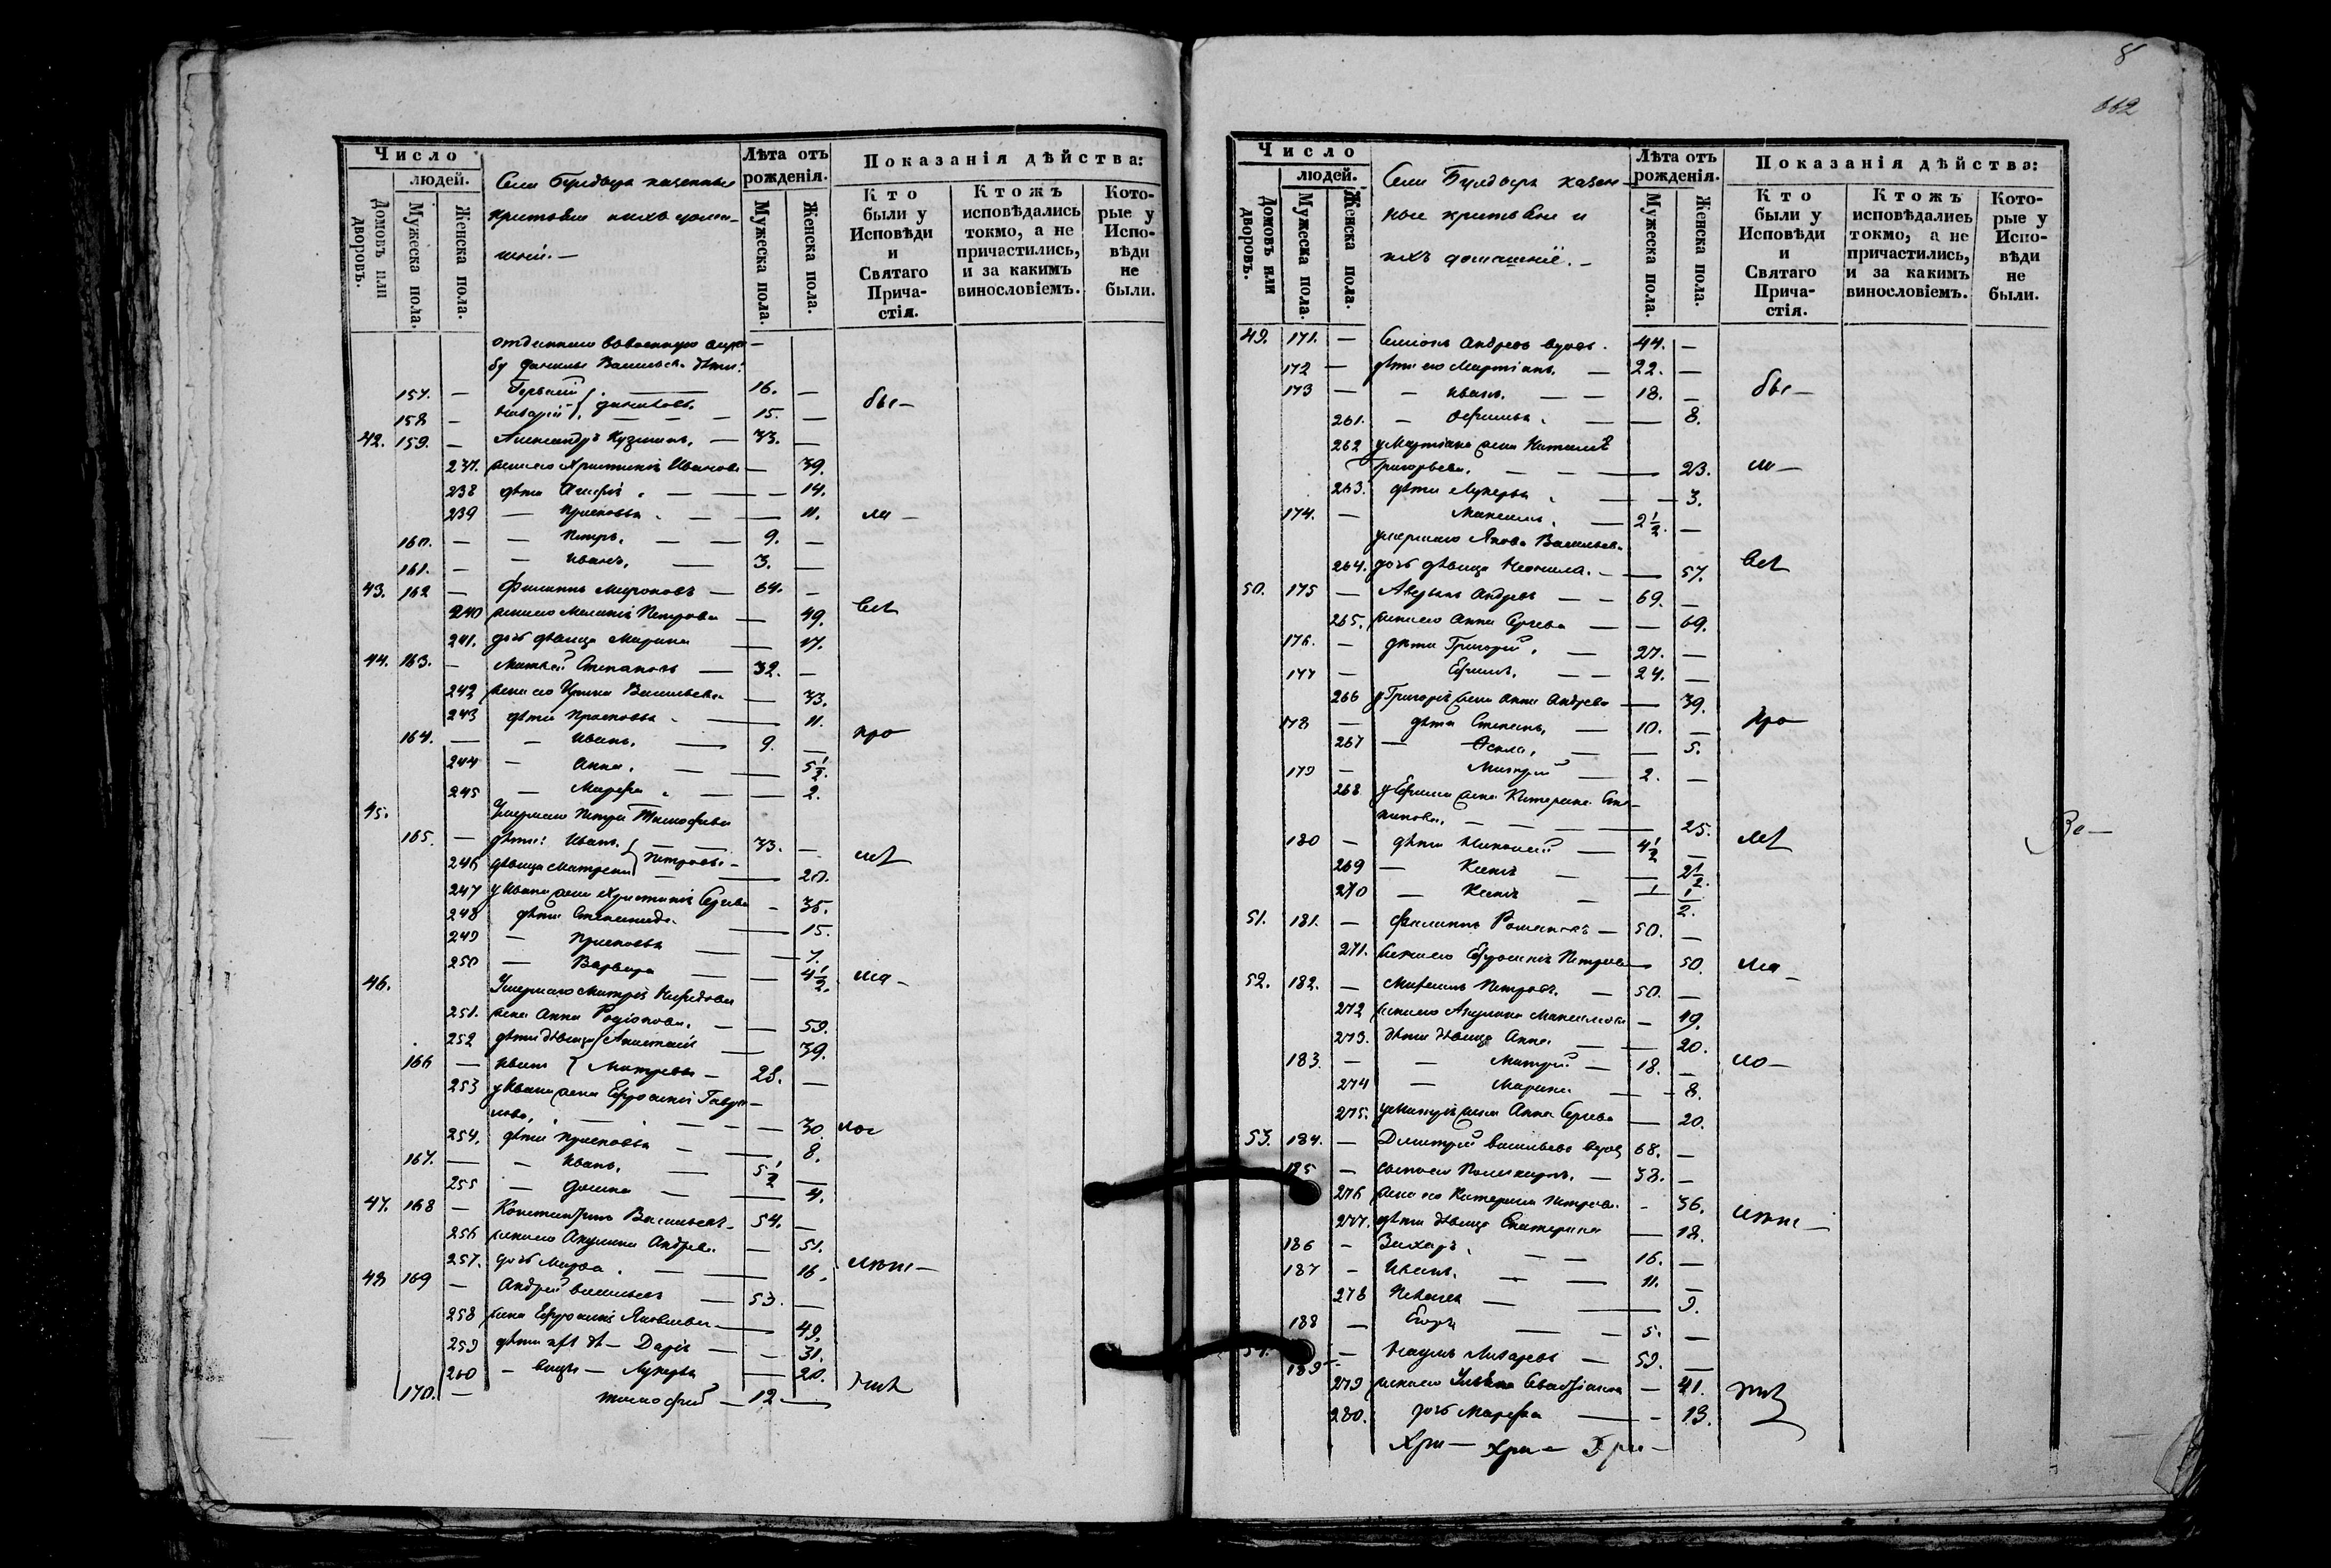 Число
людей.
Домовъ или дворовъ.
Мужеска пола.
Женска пола.
Села Бундыря казенные
крестьяне ихъ домаш-
ніи. —
Лѣта отъ рожденія.
Мужеска пола.
Женска пола.
Показанія дѣйства:
Кто были у Исповѣди и Святаго Причастія.
Ктожъ исповѣдались токмо, а не причастились, и за какимъ винословіемъ.
Которые у Исповѣди не были.
отданнаго въ военную служ-
бу Данилы Васильева дѣти:
157. — 16. — бы-
158 — Назарій Даниловы. 15. —
42. 159. — Александръ Кузминъ. — 33. —
237. жена его Христинія Иванова — 39.
238 дѣти Агафія. — 14.
239 — Прасковья. — 11. ли —
160. — Петръ. — 9. —
161. — Иванъ. — 3. —
43. 162 — Филиппъ Мироновъ — 64. —
240 жена его Меланія Петрова — 49. Всѣ
241. дочь дѣвица Марина — 17.
44. 163. — Матвей Степановъ — 32. —
242 жена его Ирина Васильева — 33.
243 дѣти Прасковья — 11.
164. — Иванъ. — 9. — про
244 — Анна. — 5½
245 — Марфа. — 2.
45. Умершаго Петра Тимофеева
165. — дѣти: Иванъ 33. —
246 дѣвица Матрена Петровы — 20.
247 у Ивана жена Христинія Сергѣева — 35.
248 дѣти Степанида — 15.
249 — Прасковья — 7.
250 — Варвара — 4½. ма —
46. Умершаго Митрія Нефедова
251. жена Анна Родіонова. — 59.
252 дѣти дѣвица Анастасія — 39.
166 — Иванъ Митревы — 28. —
253 у Ивана жена Ефросинія Гаври-
лова. — 30.
254. дѣти Прасковья — 8.
167. — Иванъ. — 5½ —
255 — Домна — 4.
47. 168 — Константинъ Васильевъ — 54. —
256 жена его Акулина Андрева — 51.
257. дочь Марѳа. — 16.
48 169 — Андрей Васильевъ — 53. —
258 жена Ефросинія Яковлева — 49.
259 дѣти дѣ — Дарія — 31.
260 — вицы — Лукерья — 20.
170. — Тимофей — 12 —
8
662
Число
людей.
Домовъ или дворовъ.
Мужеска пола.
Женска пола.
Села Бундыря казен-
ные крестьяне и
ихъ домашніе. —
Лѣта отъ рожденія.
Мужеска пола.
Женска пола.
Показанія дѣйства:
Кто были у Исповѣди и Святаго Причастія.
Ктожъ исповѣдались токмо, а не причастились, и за какимъ винословіемъ.
Которые у Исповѣди не были.
49. 171. — Семіонъ Андревъ вдовъ. 44. —
172 — дѣти его Мартіанъ. — 22. —
173 — Иванъ. — 18. — бы —
261. — 8.
262 у Мартіана жена Наталія
Григорьева. — 23. ли —
263. дѣти Лукерья — 3.
174. — Максимъ. — 2½. —
умершаго Якова Васильева
264. дочь дѣвица Неонила. — 57. Всѣ
50. 175 — Аверьянъ Андревъ — 69. —
265. жена его Анна Сергѣева — 69.
176. — дѣти Григорій. — 27. —
177 — Ефимъ. — 24. —
266 у Григорія жена Анна Андрева — 39.
178 — дѣти Степанъ. — 10. — про
267 — Ѳекла. — 5.
179 — Митрій — 2. —
268. у Ефима жена Катерина Сте-
панова. — 25.
180 — дѣти Николай — 4½ —
269 — Ксенія — 2½.
270 — Ксенія — ½.
51. 181. — Филиппъ Романовъ — 50. —
271. жена его Ефросинія Петрова — 50. ма —
52. 182. — Михаилъ Петровъ. — 50. —
272 жена его Акулина Максимова — 49.
273. дѣти дѣвица Анна — 20.
183. — Митрій — 18. — ло —
274 — Марина — 8.
275. у Митрія жена Анна Сергѣева — 20.
53. 184. — Дмитрій Васильевъ вдовъ 68. —
185 — сынъ его Поликарпъ. — 38. —
276 жена его Катерина Петрова — 36.
277. дѣти дѣвица Екатерина — 18.
186 — Захаръ. — 16. —
187 — Иванъ. — 11. —
278 Пелагея — 9.
188 — Егоръ — 5. —
54. 189 — Наумъ Назаревъ — 59. —
279 жена его — 41.
280. дочь Марфа — 13.
Хри — Хри — Гри —